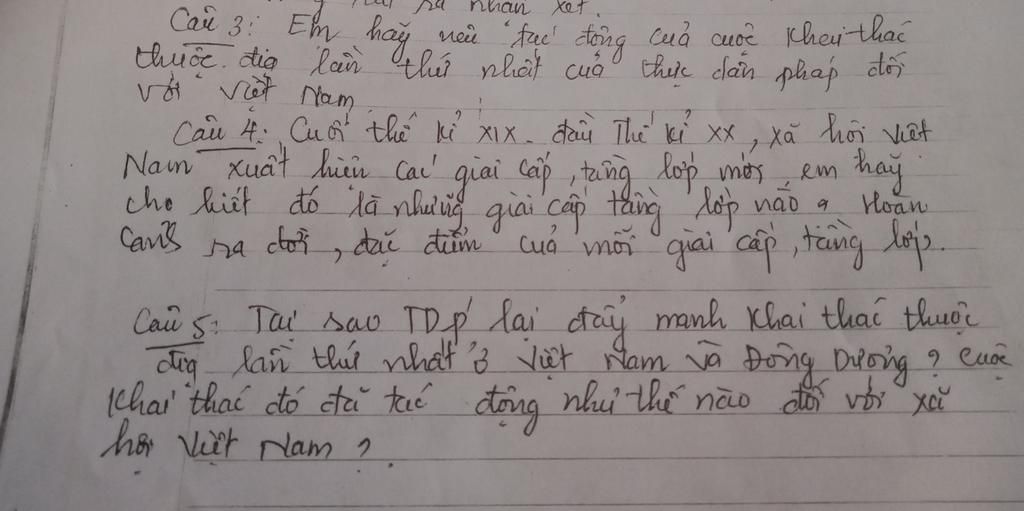 ra nhận xét.
Câu 3: Em hãy nêu tác động của cuộc khai thác
thuộc địa lần thứ nhất của thực dân pháp đối
với Việt Nam
Câu 4: Cuối thế kỉ XIX - đầu Thế kỉ XX, xã hội Việt
Nam xuất hiện các giai cấp, tầng lớp mới, em hãy
cho biết đó là những giai cấp tầng lớp nào? Hoàn
cảnh ra đời, đặc điểm của mỗi giai cấp, tầng lớp.
Câu 5: Tại sao TDP lại đẩy mạnh khai thác thuộc
địa lần thứ nhất ở Việt Nam và Đông Dương? Cuộc
khai thác đó đã tác động như thế nào đối với xã
hội Việt Nam?